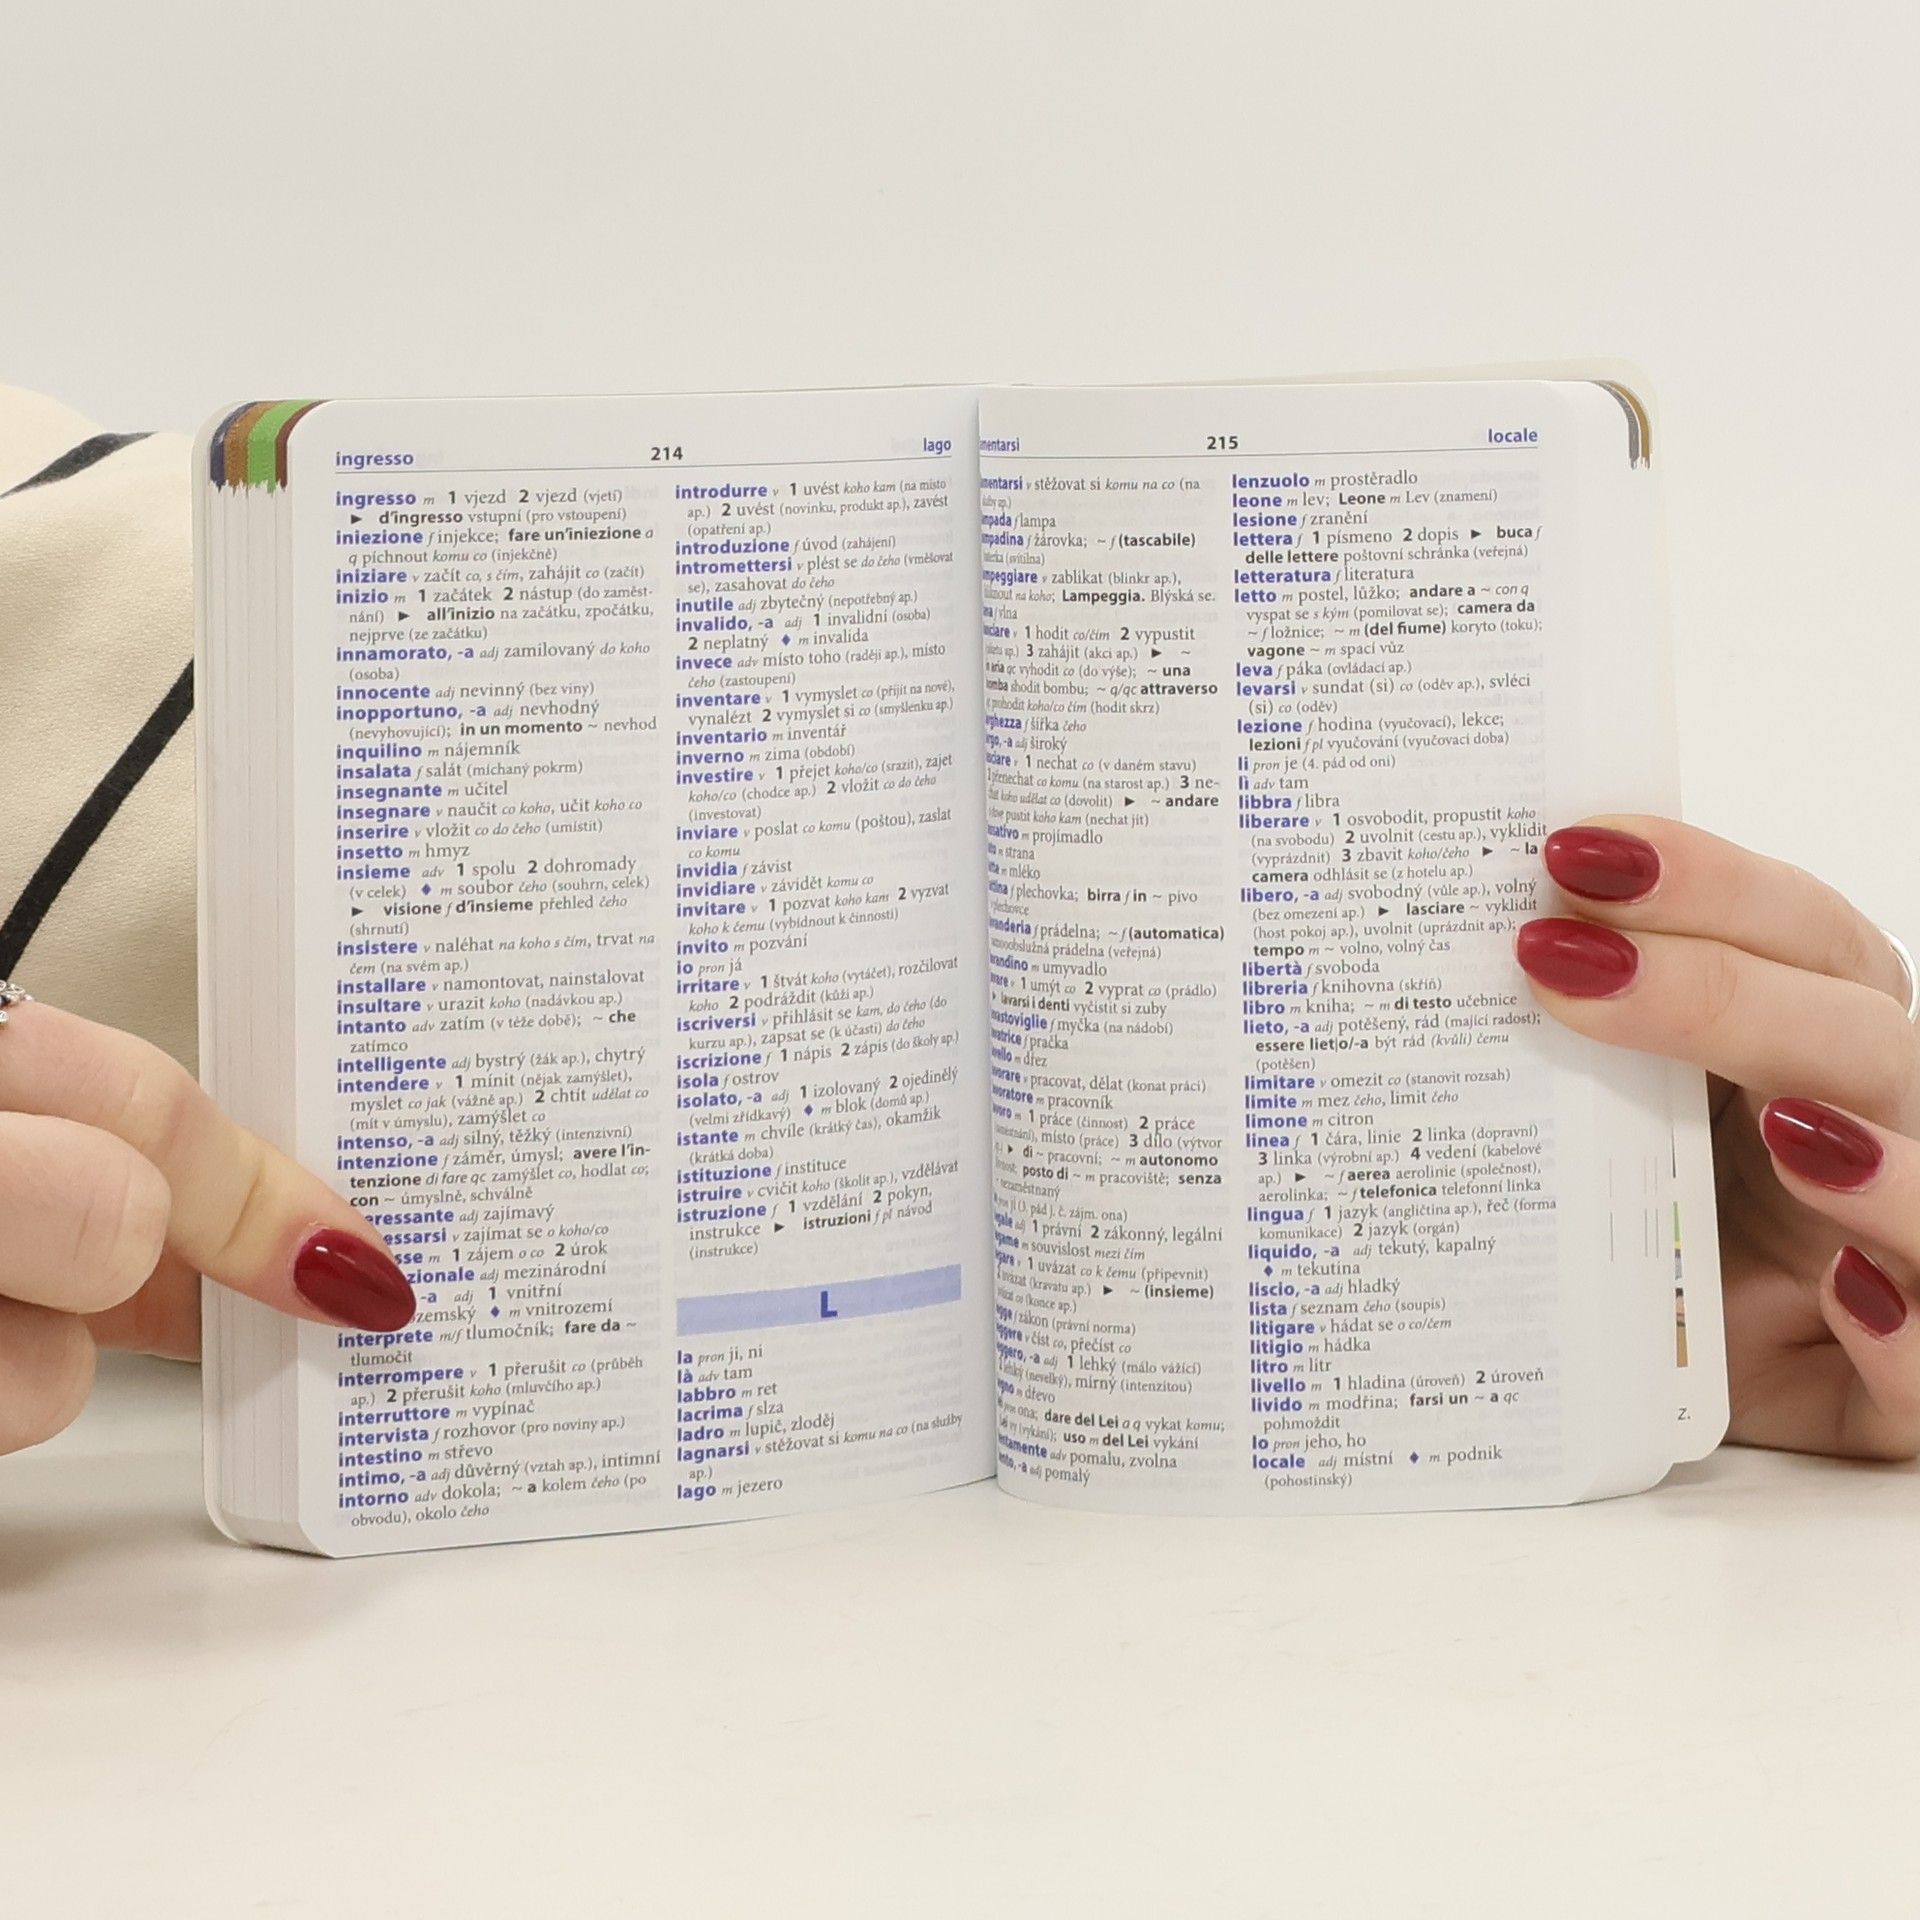 ingresso 214 lago
ingresso m 1 vjezd 2 vjezd (vjetí)
► d'ingresso vstupní (pro vstoupení)
iniezione f injekce; fare un'iniezione a
q píchnout komu co (injekčně)
iniziare v začít co, s čím, zahájit co (začít)
inizio m 1 začátek 2 nástup (do zaměst-
nání) ► all'inizio na začátku, zpočátku,
nejprve (ze začátku)
innamorato, -a adj zamilovaný do koho
(osoba)
innocente adj nevinný (bez viny)
inopportuno, -a adj nevhodný
(nevyhovující); in un momento ~ nevhod
inquilino m nájemník
insalata f salát (míchaný pokrm)
insegnante m učitel
insegnare v naučit co koho, učit koho co
inserire v vložit co do čeho (umístit)
insetto m hmyz
insieme adv 1 spolu 2 dohromady
(v celek) ♦ m soubor čeho (souhrn, celek)
► visione f d'insieme přehled čeho
(shrnutí)
insistere v naléhat na koho s čím, trvat na
čem (na svém ap.)
installare v namontovat, nainstalovat
insultare v urazit koho (nadávkou ap.)
intanto adv zatím (v téže době); ~ che
zatímco
intelligente adj bystrý (žák ap.), chytrý
intendere v 1 mínit (nějak zamýšlet),
myslet co jak (vážně ap.) 2 chtít udělat co
(mít v úmyslu), zamýšlet co
intenso, -a adj silný, těžký (intenzivní)
intenzione f záměr, úmysl; avere l'in-
tenzione di fare qc zamýšlet co, hodlat co;
con ~ úmyslně, schválně
eressante adj zajímavý
essarsi v zajímat se o koho/co
sse m 1 zájem o co 2 úrok
zionale adj mezinárodní
-a adj 1 vnitřní
zemský ♦ m vnitrozemí
interprete m/f tlumočník; fare da ~
tlumočit
interrompere v 1 přerušit co (průběh
ap.) 2 přerušit koho (mluvčího ap.)
interruttore m vypínač
intervista f rozhovor (pro noviny ap.)
intestino m střevo
intimo, -a adj důvěrný (vztah ap.), intimní
intorno adv dokola; ~ a kolem čeho (po
obvodu), okolo čeho
introdurre v 1 uvést koho kam (na místo
ap.) 2 uvést (novinku, produkt ap.), zavést
(opatření ap.)
introduzione f úvod (zahájení)
intromettersi v plést se do čeho (vměšovat
se), zasahovat do čeho
inutile adj zbytečný (nepotřebný ap.)
invalido, -a adj 1 invalidní (osoba)
2 neplatný ♦ m invalida
invece adv místo toho (raději ap.), místo
čeho (zastoupení)
inventare v 1 vymyslet co (přijít na nové),
vynalézt 2 vymyslet si co (smyšlenku ap.)
inventario m inventář
inverno m zima (období)
investire v 1 přejet koho/co (srazit), zajet
koho/co (chodce ap.) 2 vložit co do čeho
(investovat)
inviare v poslat co komu (poštou), zaslat
co komu
invidia f závist
invidiare v závidět komu co
invitare v 1 pozvat koho kam 2 vyzvat
koho k čemu (vybídnout k činnosti)
invito m pozvání
io pron já
irritare v 1 štvát koho (vytáčet), rozčilovat
koho 2 podráždit (kůži ap.)
iscriversi v přihlásit se kam, do čeho (do
kurzu ap.), zapsat se (k účasti) do čeho
iscrizione f 1 nápis 2 zápis (do školy ap.)
isola f ostrov
isolato, -a adj 1 izolovaný 2 ojedinělý
(velmi zřídkavý) ♦ m blok (domů ap.)
istante m chvíle (krátký čas), okamžik
(krátká doba)
istituzione f instituce
istruire v cvičit koho (školit ap.), vzdělávat
istruzione f 1 vzdělání 2 pokyn,
instrukce ► istruzioni f pl návod
(instrukce)
L
la pron ji, ni
là adv tam
labbro m ret
lacrima f slza
ladro m lupič, zloděj
lagnarsi v stěžovat si komu na co (na služby
ap.)
lago m jezero
mentarsi 215 locale
mentarsi v stěžovat si komu na co (na
ap.)
mpada f lampa
mpadina f žárovka; ~ f (tascabile)
(svítilna)
mpeggiare v zablikat (blinkr ap.),
na koho; Lampeggia. Blýská se.
f vlna
v 1 hodit co/čím 2 vypustit
ap.) 3 zahájit (akci ap.) ► ~
aria qc vyhodit co (do výše); ~ una
bomba shodit bombu; ~ q/qc attraverso
prohodit koho/co čím (hodit skrz)
f šířka čeho
-a adj široký
v 1 nechat co (v daném stavu)
přenechat co komu (na starost ap.) 3 ne-
koho udělat co (dovolit) ► ~ andare
pustit koho kam (nechat jít)
m projímadlo
m strana
m mléko
f plechovka; birra f in ~ pivo
plechovce
f prádelna; ~ f (automatica)
samoobslužná prádelna (veřejná)
m umyvadlo
v 1 umýt co 2 vyprat co (prádlo)
► lavarsi i denti vyčistit si zuby
f myčka (na nádobí)
f pračka
m dřez
v pracovat, dělat (konat práci)
m pracovník
m 1 práce (činnost) 2 práce
místo (práce) 3 dílo (výtvor
► di ~ pracovní; ~ m autonomo
posto di ~ m pracoviště; senza
nezaměstnaný
jí (3. pád j. č. zájm. ona)
adj 1 právní 2 zákonný, legální
m souvislost mezi čím
v 1 uvázat co k čemu (připevnit)
uvázat (kravatu ap.) ► ~ (insieme)
co (konce ap.)
f zákon (právní norma)
v číst co, přečíst co
-a adj 1 lehký (málo vážící)
lehký (nevelký), mírný (intenzitou)
m dřevo
ona; dare del Lei a q vykat komu;
(vykání); uso m del Lei vykání
adv pomalu, zvolna
-a adj pomalý
lenzuolo m prostěradlo
leone m lev; Leone m Lev (znamení)
lesione f zranění
lettera f 1 písmeno 2 dopis ► buca f
delle lettere poštovní schránka (veřejná)
letteratura f literatura
letto m postel, lůžko; andare a ~ con q
vyspat se s kým (pomilovat se); camera da
~ f ložnice; ~ m (del fiume) koryto (toku);
vagone ~ m spací vůz
leva f páka (ovládací ap.)
levarsi v sundat (si) co (oděv ap.), svléci
(si) co (oděv)
lezione f hodina (vyučovací), lekce;
lezioni f pl vyučování (vyučovací doba)
li pron je (4. pád od oni)
lì adv tam
libbra f libra
liberare v 1 osvobodit, propustit koho
(na svobodu) 2 uvolnit (cestu ap.), vyklidit
(vyprázdnit) 3 zbavit koho/čeho ► ~ la
camera odhlásit se (z hotelu ap.)
libero, -a adj svobodný (vůle ap.), volný
(bez omezení ap.) ► lasciare ~ vyklidit
(host pokoj ap.), uvolnit (uprázdnit ap.);
tempo m ~ volno, volný čas
libertà f svoboda
libreria f knihovna (skříň)
libro m kniha; ~ m di testo učebnice
lieto, -a adj potěšený, rád (mající radost);
essere liet|o/-a být rád (kvůli) čemu
(potěšen)
limitare v omezit co (stanovit rozsah)
limite m mez čeho, limit čeho
limone m citron
linea f 1 čára, linie 2 linka (dopravní)
3 linka (výrobní ap.) 4 vedení (kabelové
ap.) ► ~ f aerea aerolinie (společnost),
aerolinka; ~ f telefonica telefonní linka
lingua f 1 jazyk (angličtina ap.), řeč (forma
komunikace) 2 jazyk (orgán)
liquido, -a adj tekutý, kapalný
♦ m tekutina
liscio, -a adj hladký
lista f seznam čeho (soupis)
litigare v hádat se o co/čem
litigio m hádka
litro m litr
livello m 1 hladina (úroveň) 2 úroveň
livido m modřina; farsi un ~ a qc
pohmoždit
lo pron jeho, ho
locale adj místní ♦ m podnik
(pohostinský)
z.